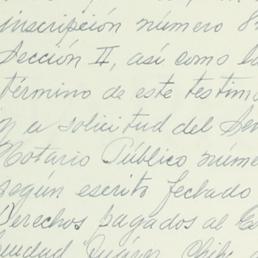 inscripción número 8
Sección II, así como l
término de este testim
a solicitud del Se
Notario Público núme
según escrito fechado
Derechos pagados al
Ciudad Juárez, Chih.